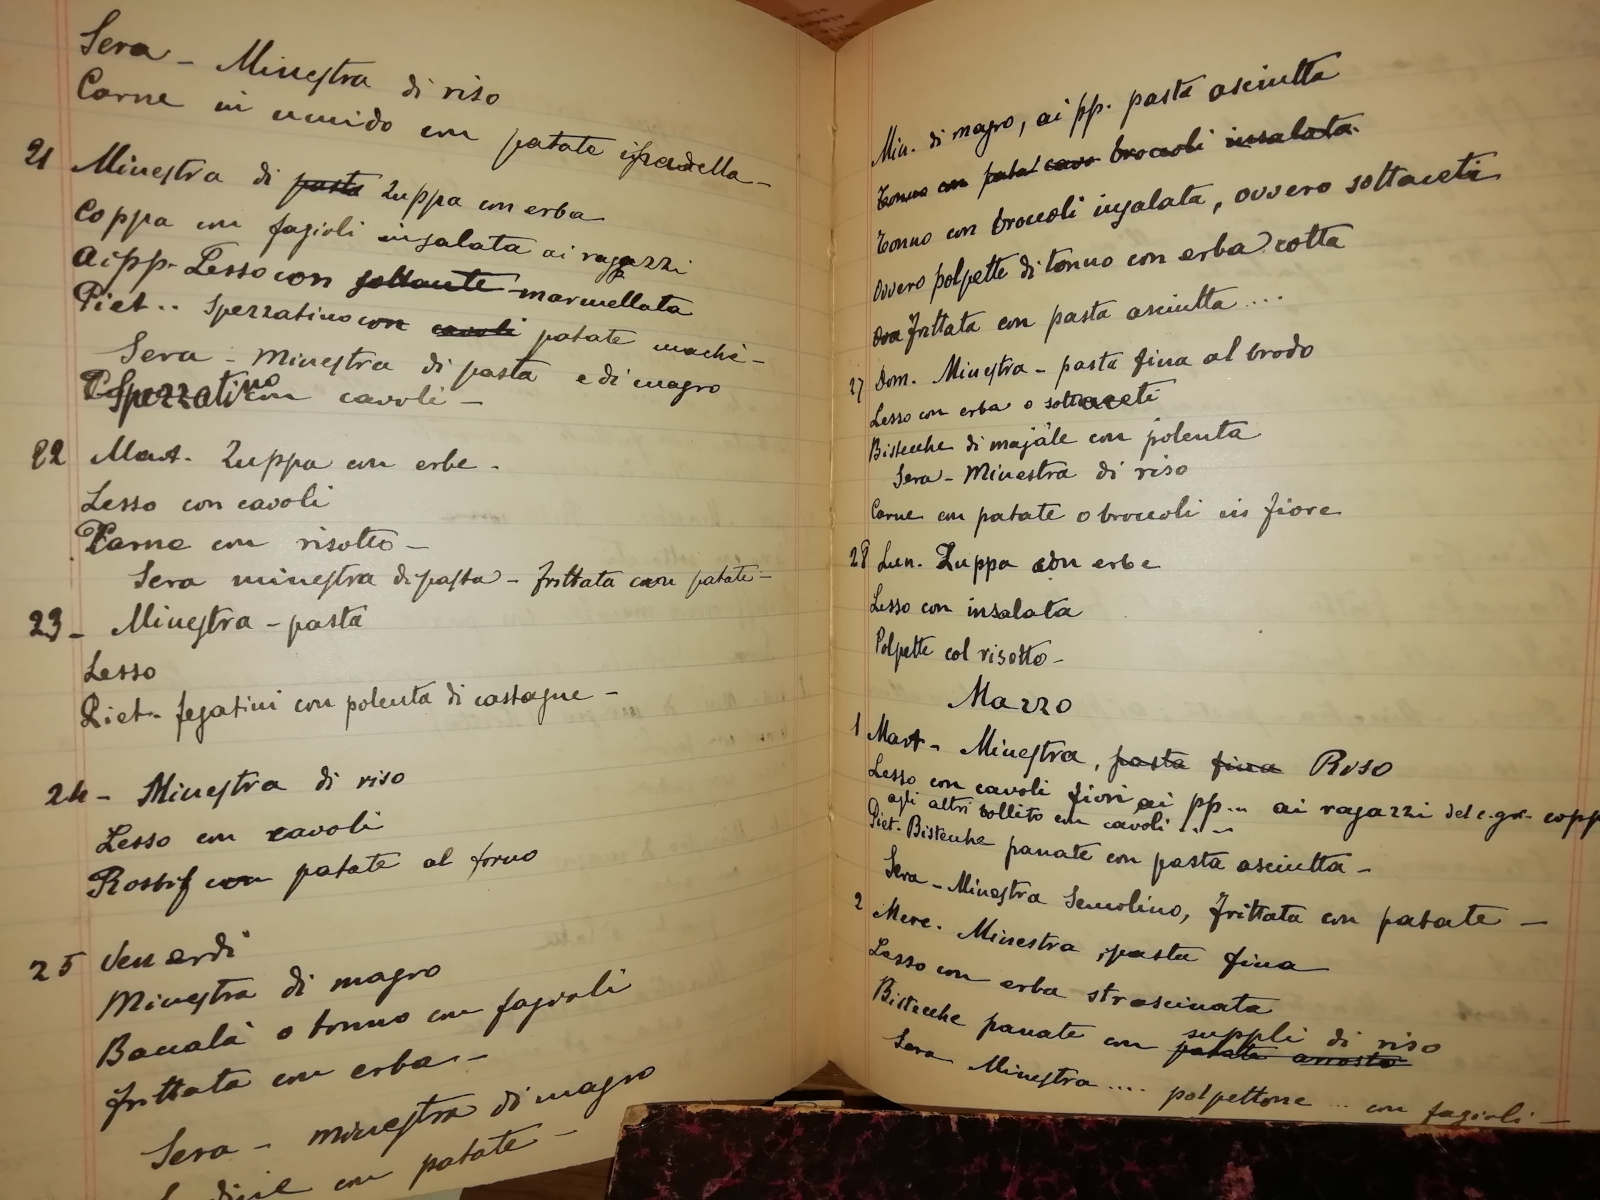 Sera - Minestra di riso
Carne in umido con patate
21 Minestra di pasta Zuppa con erba
Coppa con fagioli insalata ai ragazzi
Ai pp. Lesso con marmellata
Piet.. Spezzatino con cavoli patate maché -
Sera - Minestra di pasta e di magro
Spezzatino con cavoli -
22 Mart. Zuppa con erbe -
Lesso con cavoli
Carne con risotto -
Sera minestra di pasta - frittata con patate -
23 - Minestra - pasta
Lesso
Piet - fegatini con polenta di castagne -
24 - Minestra di riso
Lesso con cavoli
Rosbif con patate al forno
25 Venerdi
Minestra di magro
Bacalà o tonno con fagioli
frittata con erba -
Sera - minestra di magro
con patate -
Min. di magro, ai pp. pasta asciutta
Tonno con patat cavo broccoli insalata.
Tonno con broccoli insalata, ovvero sottaceti
Ovvero polpette di tonno con erba cotta
Ova frittata con pasta asciutta ....
27 Dom. Minestra - pasta fina al brodo
Lesso con erba o sottaceti
Bistecche di majale con polenta
Sera - Minestra di riso
Carne con patate o broccoli in fiore
28 Lun. Zuppa con erbe
Lesso con insalata
Polpette col risotto -
Marzo
1 Mart - Minestra, pasta fina Riso
Lesso con cavoli fiori ai pp... ai ragazzi del c. gr. copp
agli altri collito con cavoli ....
Piet. Bistecche panate con pasta asciutta -
Sera - Minestra Semolino, frittata con patate -
2 Merc. Minestra, pasta fina
Lesso con erba strascinata
Bistecche panate con patate arrosto suppli di riso
Sera Minestra .... polpettone ... con fagioli -